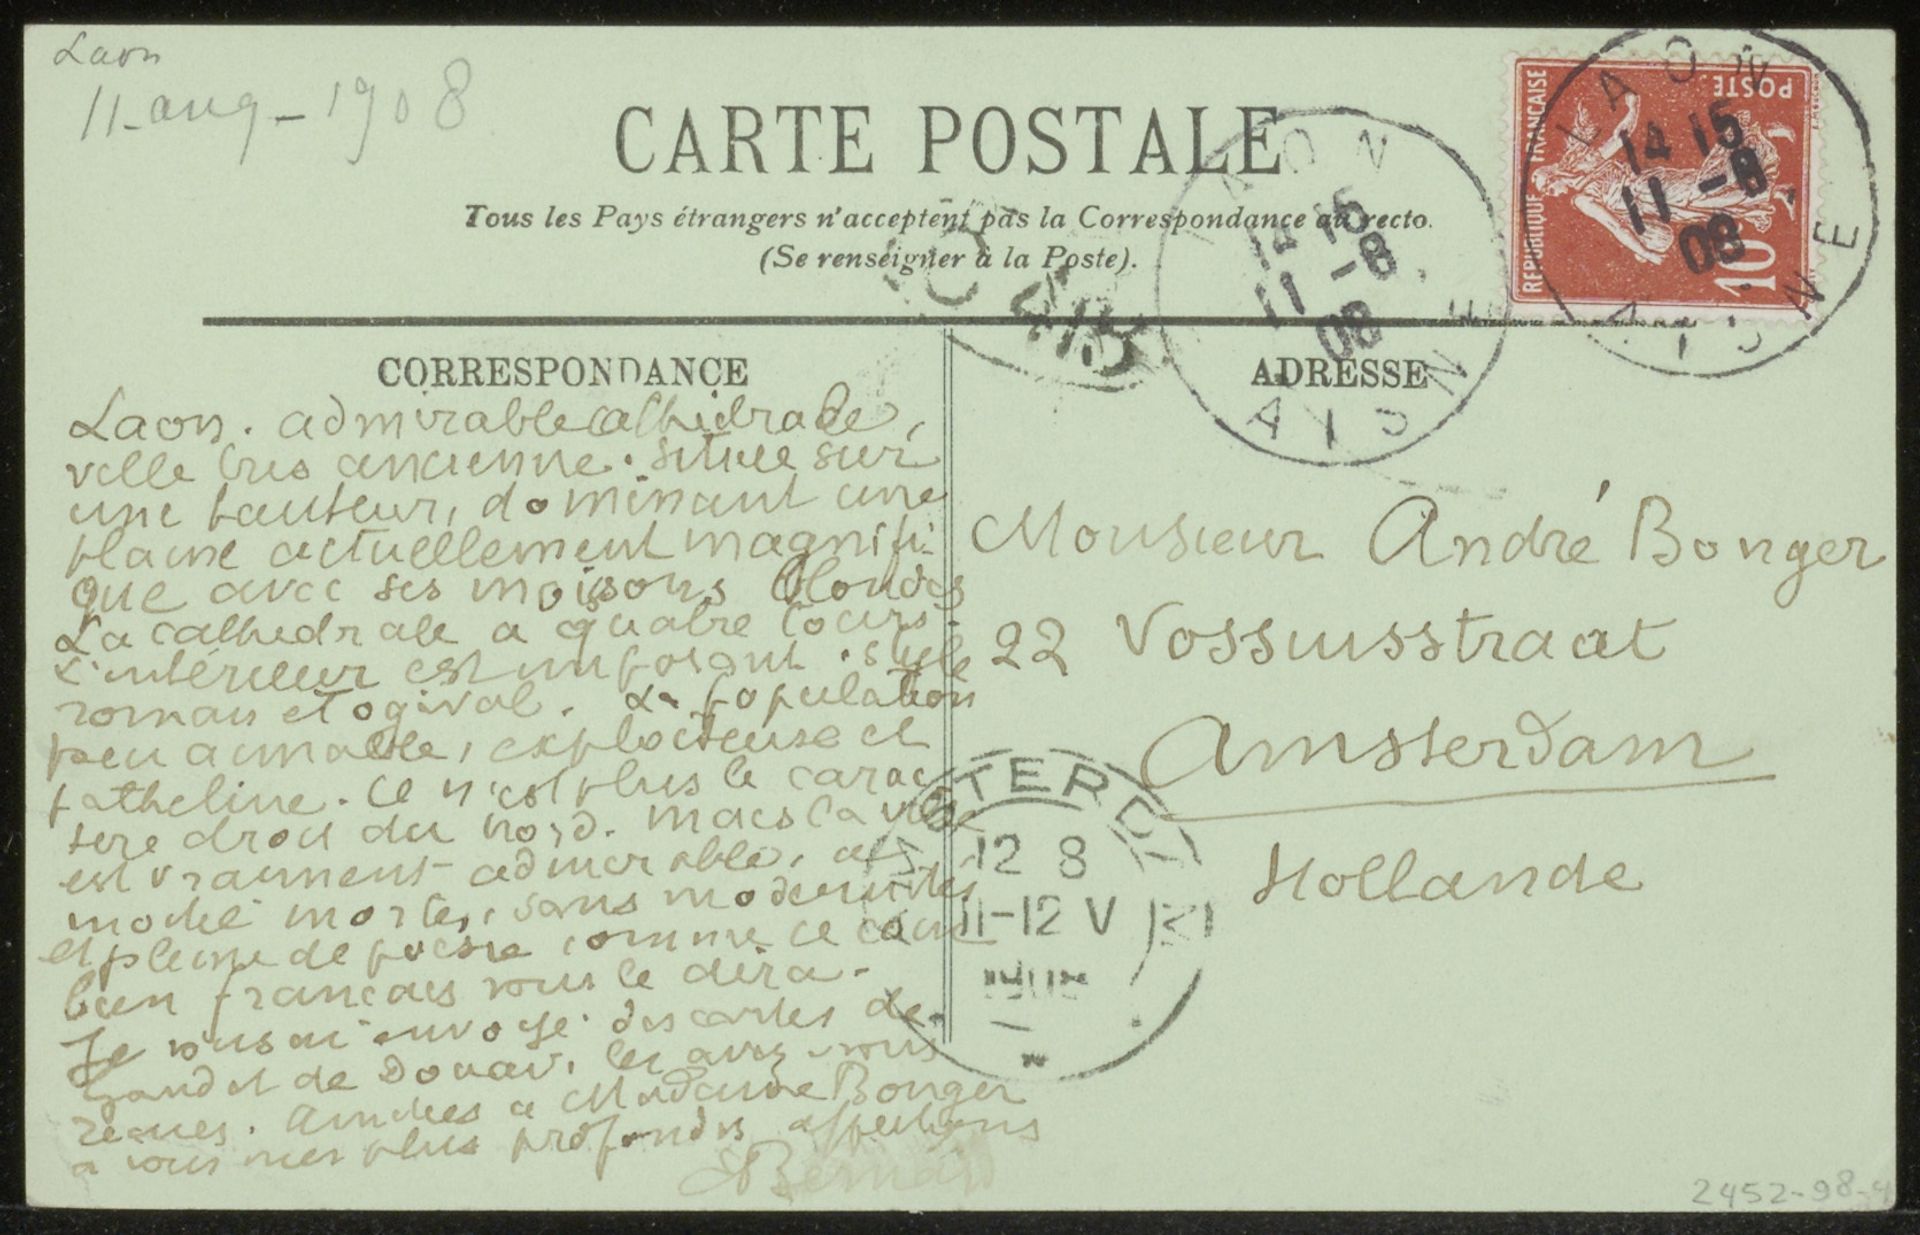 Laon
11-aug-1908
CARTE POSTALE
Tous les Pays étrangers n'acceptent pas la Correspondance au recto.
(Se renseigner à la Poste).
REPUBLIQUE FRANÇAISE
POSTES
10
LAON
14 15
11 -8
08
AISNE
LAON
14 15
11 -8
08
AISNE
CORRESPONDANCE
Laon. admirable cathédrale,
ville très ancienne. située sur
une hauteur, dominant une
plaine actuellement magnifi-
que avec ses moissons blondes
La cathedrale a quatre tours.
L'intérieur est imposant. style
roman et ogival. La population
peu aimable, exploiteuse et
patheline. Ce n'est plus le carac
tere droit du Nord. mais la ville
est vraiment admirable, a
moitié morte, sans modernités
et pleine de poesie comme ce
bien français vous le dira.
Je vous ai envoyé des cartes de
Gand et de Douai, les avez-vous
reçues. Amitiés a Madame Bonger
a vous mes plus profondes affections
EBernard
ADRESSE
Monsieur André Bonger
22 Vossiusstraat
Amsterdam
Hollande
AMSTERDAM
12 8
11-12 V
1908
2452-98-4